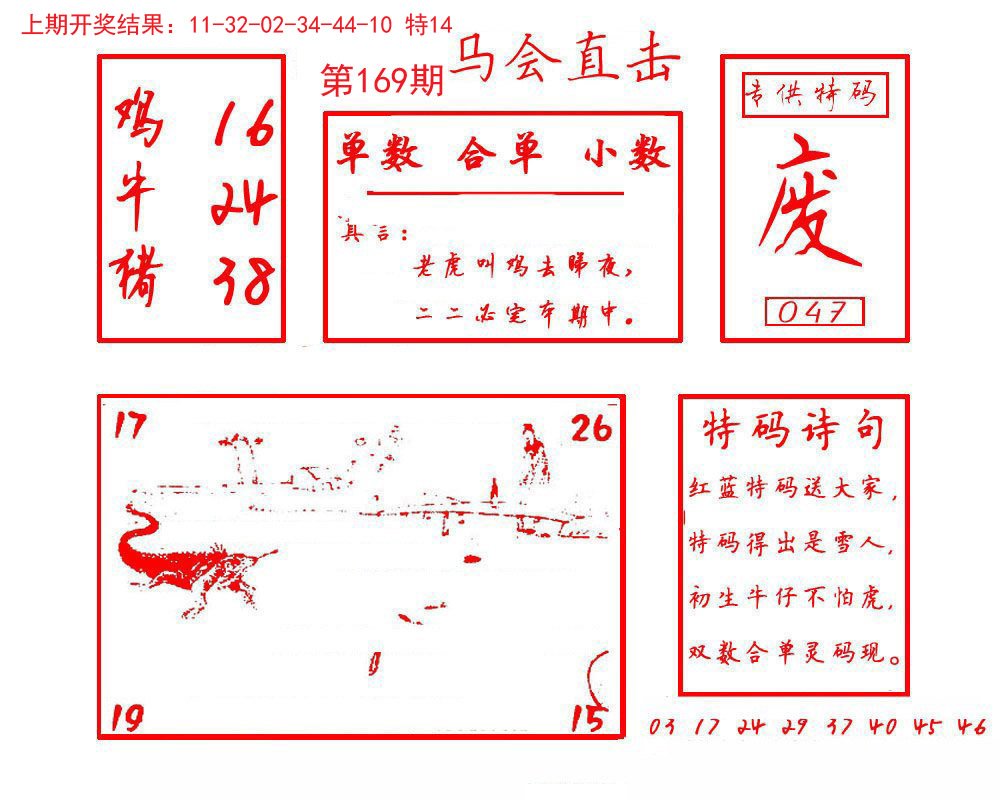 上期开奖结果：11-32-02-34-44-10 特14
第169期
马会直击
鸡 16
牛 24
猪 38
单数 合单 小数
真言：
老虎叫鸡去睇夜，
二二必定本期中。
专供特码
废
047
17
26
19
15
特码诗句
红蓝特码送大家，
特码得出是雪人，
初生牛仔不怕虎，
双数合单灵码现。
03 17 24 29 37 40 45 46